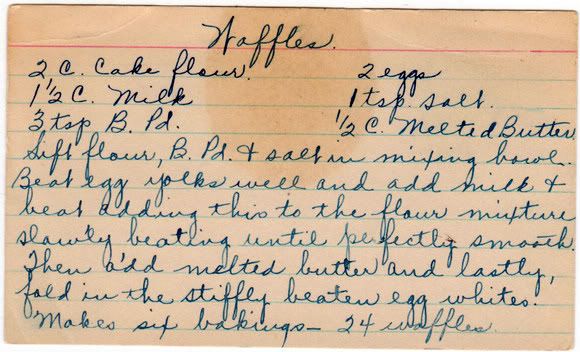 Waffles.
2 C. Cake flour. 2 eggs
1 1/2 C. Milk 1 tsp. salt.
3 tsp B. Pd. 1/2 C. Melted Butter
Sift flour, B. Pd. & salt in mixing bowl.
Beat egg yolks well and add milk &
beat adding this to the flour mixture
slowly beating until perfectly smooth.
Then add melted butter and lastly,
fold in the stiffly beaten egg whites.
Makes six bakings – 24 waffles.